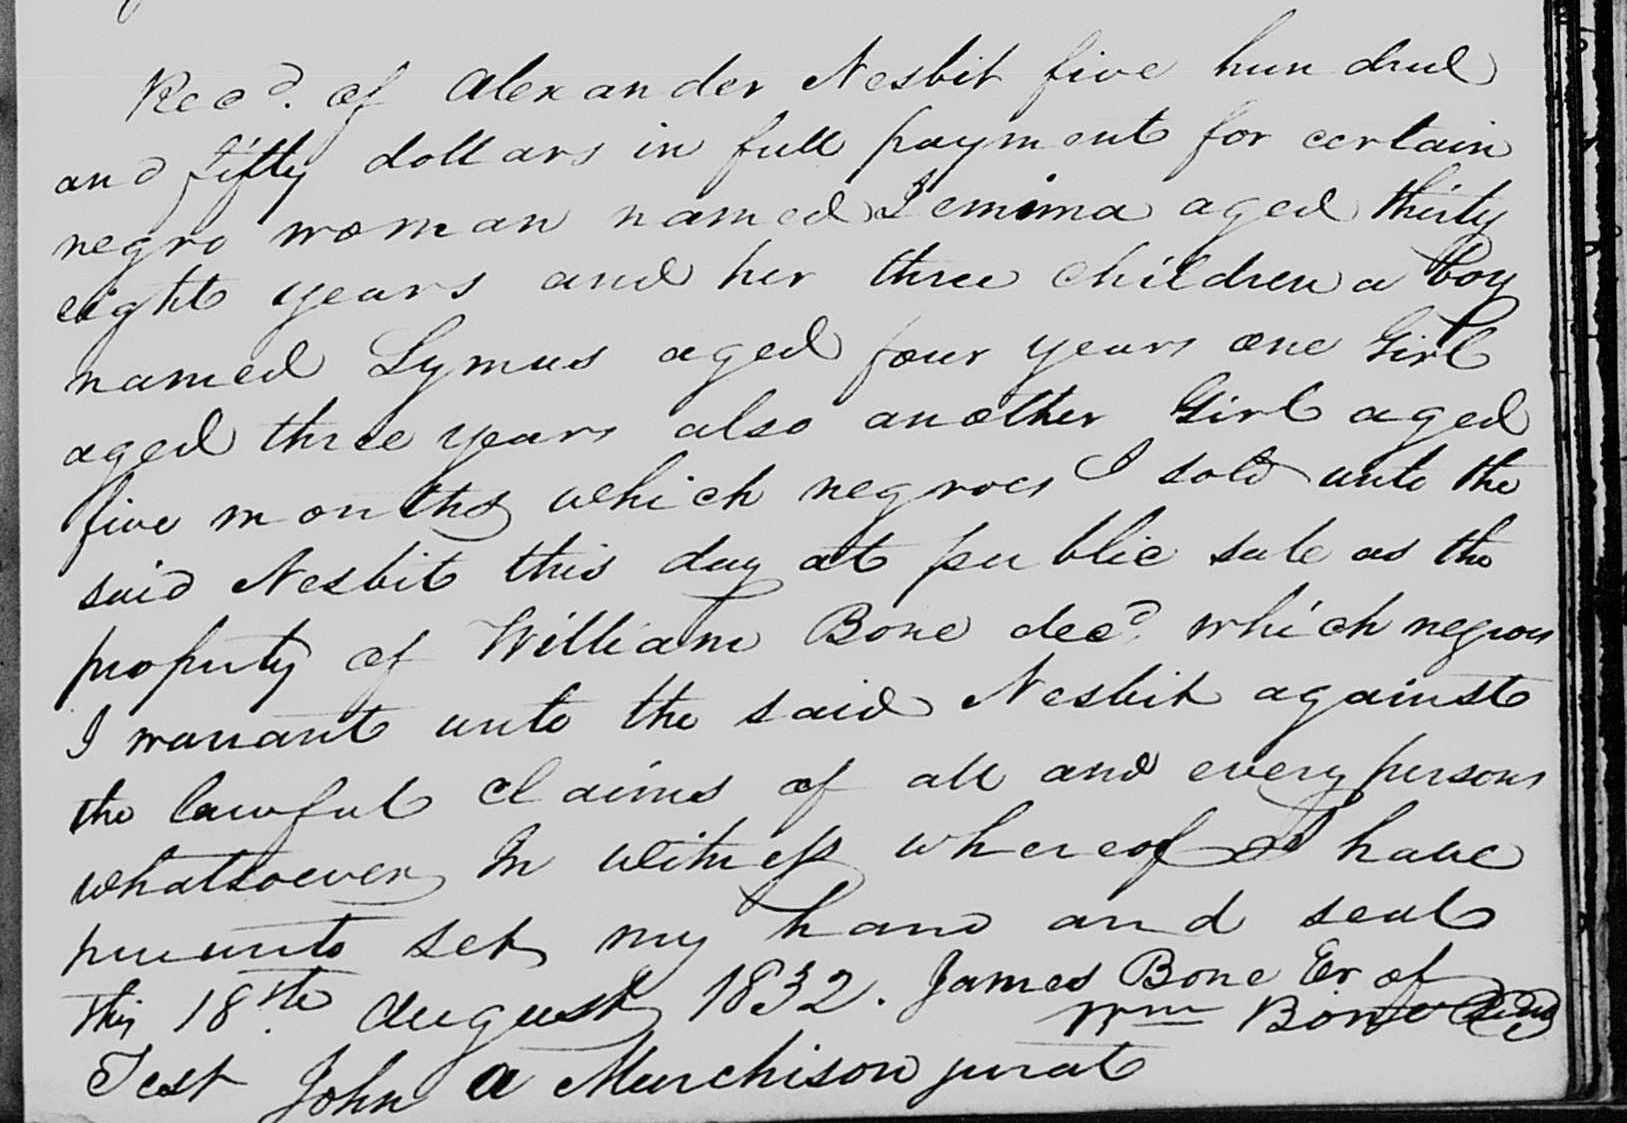 Recd. of Alexander Nesbit five hundred
and fifty dollars in full payment for certain
negro woman named Jemima aged thirty
eight years and her three children a boy
named Lymus aged four years one Girl
aged three years also another Girl aged
five months which negroes I sold unto the
said Nesbit this day at public sale as the
property of William Bone decd. which negroes
I warrant unto the said Nesbit against
the lawful claims of all and every persons
whatsoever In witness whereof I have
hereunto set my hand and seal
this 18th August 1832. James Bone Exr of
Wm Bone
Test John A Murchison jurat